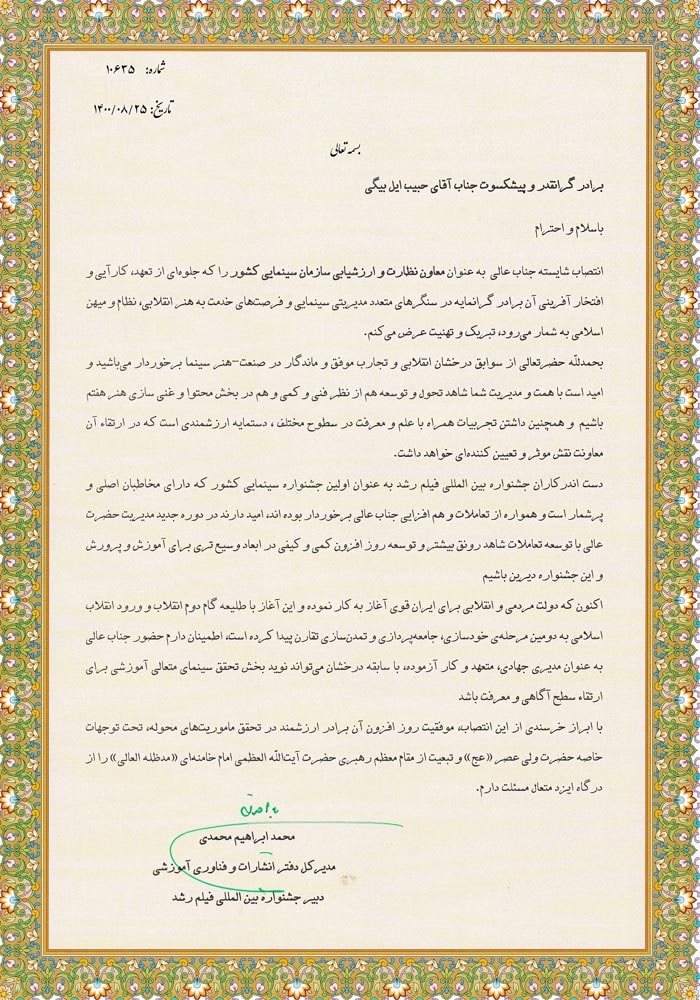 شماره: ۱۰۶۳۵
تاریخ: ۱۴۰۰/۰۸/۲۵
بسمه تعالی
برادر گرانقدر و پیشکسوت جناب آقای حبیب ایل بیگی
باسلام و احترام
انتصاب شایسته جناب عالی به عنوان معاون نظارت و ارزشیابی سازمان سینمایی کشور را که جلوه‌ای از تعهد، کارآیی و
افتخار آفرینی آن برادر گرانمایه در سنگرهای متعدد مدیریتی سینمایی و فرصت‌های خدمت به هنر انقلابی، نظام و میهن
اسلامی به شمار می‌رود، تبریک و تهنیت عرض می‌کنم.
بحمدلله حضرتعالی از سوابق درخشان انقلابی و تجارب موفق و ماندگار در صنعت-هنر سینما برخوردار می‌باشید و
امید است با همت و مدیریت شما شاهد تحول و توسعه هم از نظر فنی و کمی و هم در بخش محتوا و غنی سازی هنر هفتم
باشیم و همچنین داشتن تجربیات همراه با علم و معرفت در سطوح مختلف ، دستمایه ارزشمندی است که در ارتقاء آن
معاونت نقش موثر و تعیین کننده‌ای خواهد داشت.
دست اندرکاران جشنواره بین المللی فیلم رشد به عنوان اولین جشنواره سینمایی کشور که دارای مخاطبان اصلی و
پرشمار است و همواره از تعاملات و هم افزایی جناب عالی برخوردار بوده اند، امید دارند در دوره جدید مدیریت حضرت
عالی با توسعه تعاملات شاهد رونق بیشتر و توسعه روز افزون کمی و کیفی در ابعاد وسیع تری برای آموزش و پرورش
و این جشنواره دیرین باشیم
اکنون که دولت مردمی و انقلابی برای ایران قوی آغاز به کار نموده و این آغاز با طلیعه گام دوم انقلاب و ورود انقلاب
اسلامی به دومین مرحله‌ی خودسازی، جامعه‌پردازی و تمدن‌سازی تقارن پیدا کرده است، اطمینان دارم حضور جناب عالی
به عنوان مدیری جهادی، متعهد و کار آزموده، با سابقه درخشان می‌تواند نوید بخش تحقق سینمای متعالی آموزشی برای
ارتقاء سطح آگاهی و معرفت باشد
با ابراز خرسندی از این انتصاب، موفقیت روز افزون آن برادر ارزشمند در تحقق ماموریت‌های محوله، تحت توجهات
خاصه حضرت ولی عصر «عج» و تبعیت از مقام معظم رهبری حضرت آیت‌الله العظمی امام خامنه‌ای «مدظله العالی» را از
درگاه ایزد متعال مسئلت دارم.
محمد ابراهیم محمدی
مدیرکل دفتر انتشارات و فناوری آموزشی
دبیر جشنواره بین المللی فیلم رشد